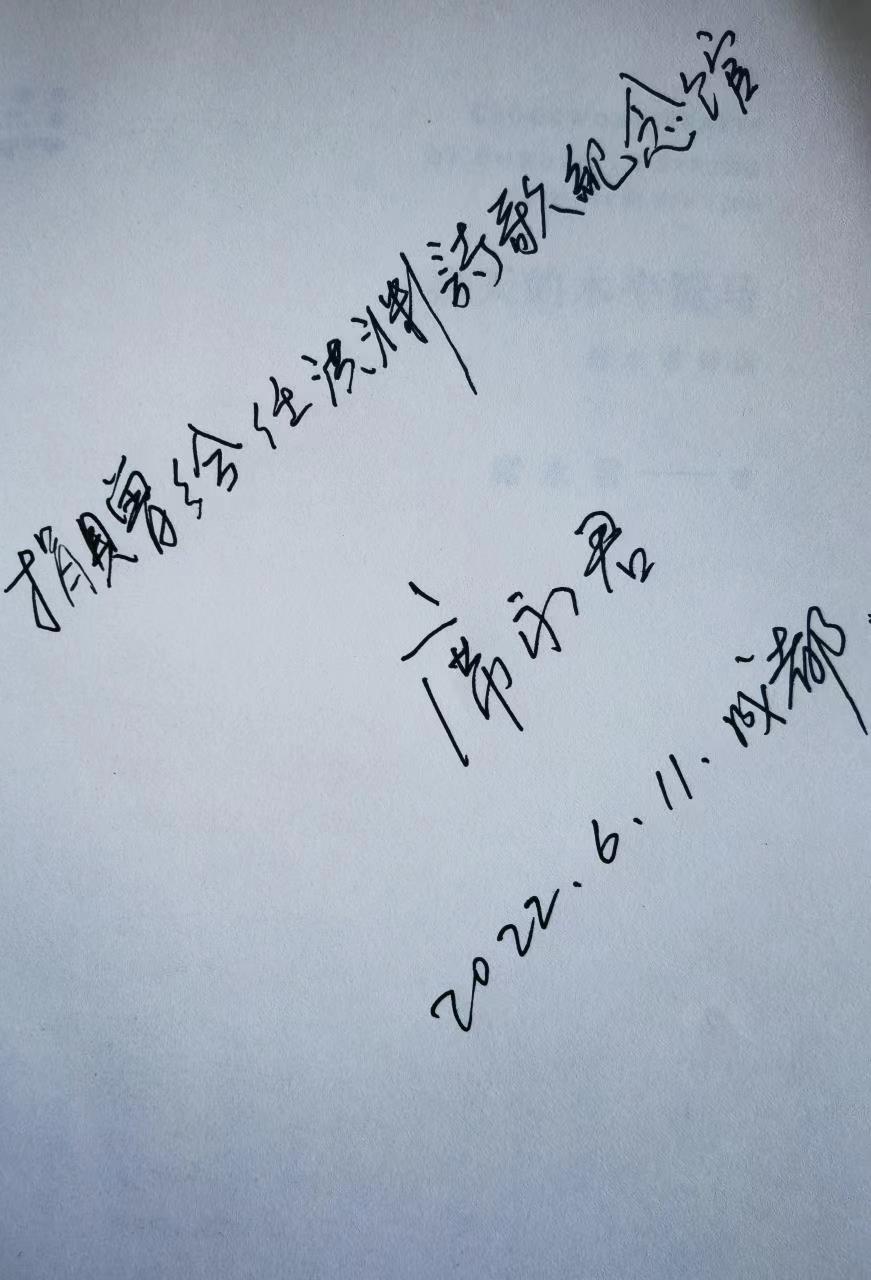 捐赠给任洪渊詩歌纪念馆
席永君
2022.6.11.成都